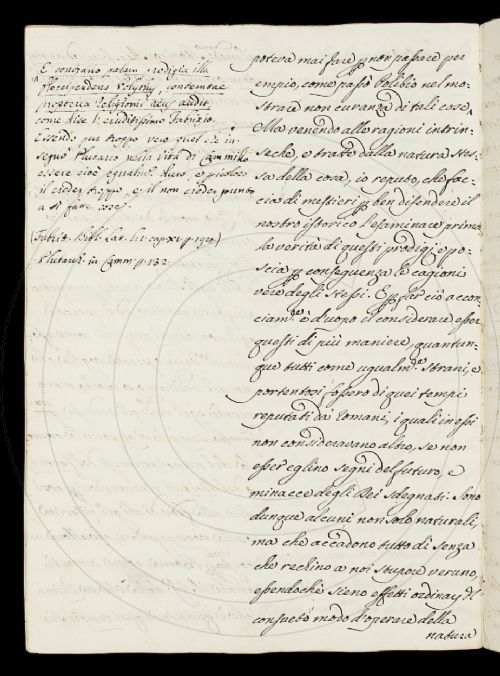 E converso palam prodigia illa
Florei perdens Polybij, contemtae
postrema religionis reus audit,
come dice l'eruditissimo Fabrizio.
Essendo pur troppo vero quel che in=
segnò Plutarco nella Vita di Cammillo
essere cioè egualm.te
il creder troppo, e il non creder punto
a sì fatte cose.
Fabrit. Bibl. Lat. lib. cap. XI. p. 192.)
Plutarc. in Camm. p. 132.
poteva mai fare p non passare per
empio, come passò Polibio nel mo=
strare non curanza di tali cose.
Ma venendo alle ragioni intrin=
seche, e tratte dalla natura stes=
sa della cosa, io reputo, che fac=
cia di mestieri p ben difendere il
nostro istorico l'esaminare prima
la verità di questi prodigi, e po=
scia p conseguenza le cagioni
vere degli stessi. E p far ciò accon=
ciam.te è d'uopo il considerare esser
questi di più maniere, quantun=
que tutti come ugualm.te strani, e
portentosi fossero di quei tempi
reputati da' Romani, i quali in essi
non consideravano altro, se non
esser eglino segni del futuro, e
minacce degli Dei sdegnati. Sono
dunque alcuni non solo naturali,
ma che accadono tutto dì senza
che rechino a noi stupore veruno,
essendochè sieno effetti ordinarj del
consueto modo d'operare della
natura